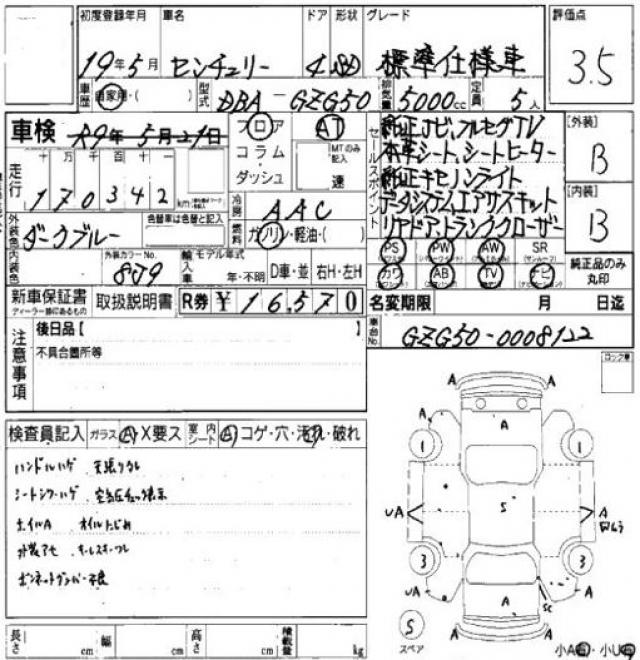 初度登録年月 車名 ドア 形状 グレード 評価点
19年5月 センチュリー 4 SD 標準仕様車 3.5
車歴 自家用・( ) 型式 DBA-GZG50 排気量 5000cc 定員 5人
車検 R9年5月21日 フロア コラム・ダッシュ AT MTのみ記入 速
セールスポイント
純正ナビ、フルセグTV
本革シート、シートヒーター
純正キセノンライト
リアドア、トランククローザー
[外装] B
[内装] B
走行 十万千百十一
170342 km
冷房 AAC
燃料 ガソリン・軽油・( )
外装色 ダークブルー 色替車は色替と記入
内装色 外装カラーNo. 8J9
輸入車 モデル年式 年・不明 D車・並 右H・左H
PS PW AW SR
カワ AB TV ナビ
純正品のみ丸印
新車保証書 ディーラー捺印あるもの 取扱説明書 R券 ¥16570
名変期限 月 日迄
車台No. GZG50-0008122
注意事項
後日品【 】
不具合箇所等
ロック車
検査員記入 ガラス A・X要ス 室内シート A コゲ・穴・汚れ・破れ
ハンドルハゲ 天張りタレ
シートシワ・ハゲ 空気圧チェック表示
ホイルA オイルにじみ
外装アセ キーレスキーフレ
ボンネットダンパー不良
A A
A A A
1 1
UA S A
3 3
UA A SC A
S スペア A A
小A・小U
長さ cm 幅 cm 高さ cm 積載量 kg